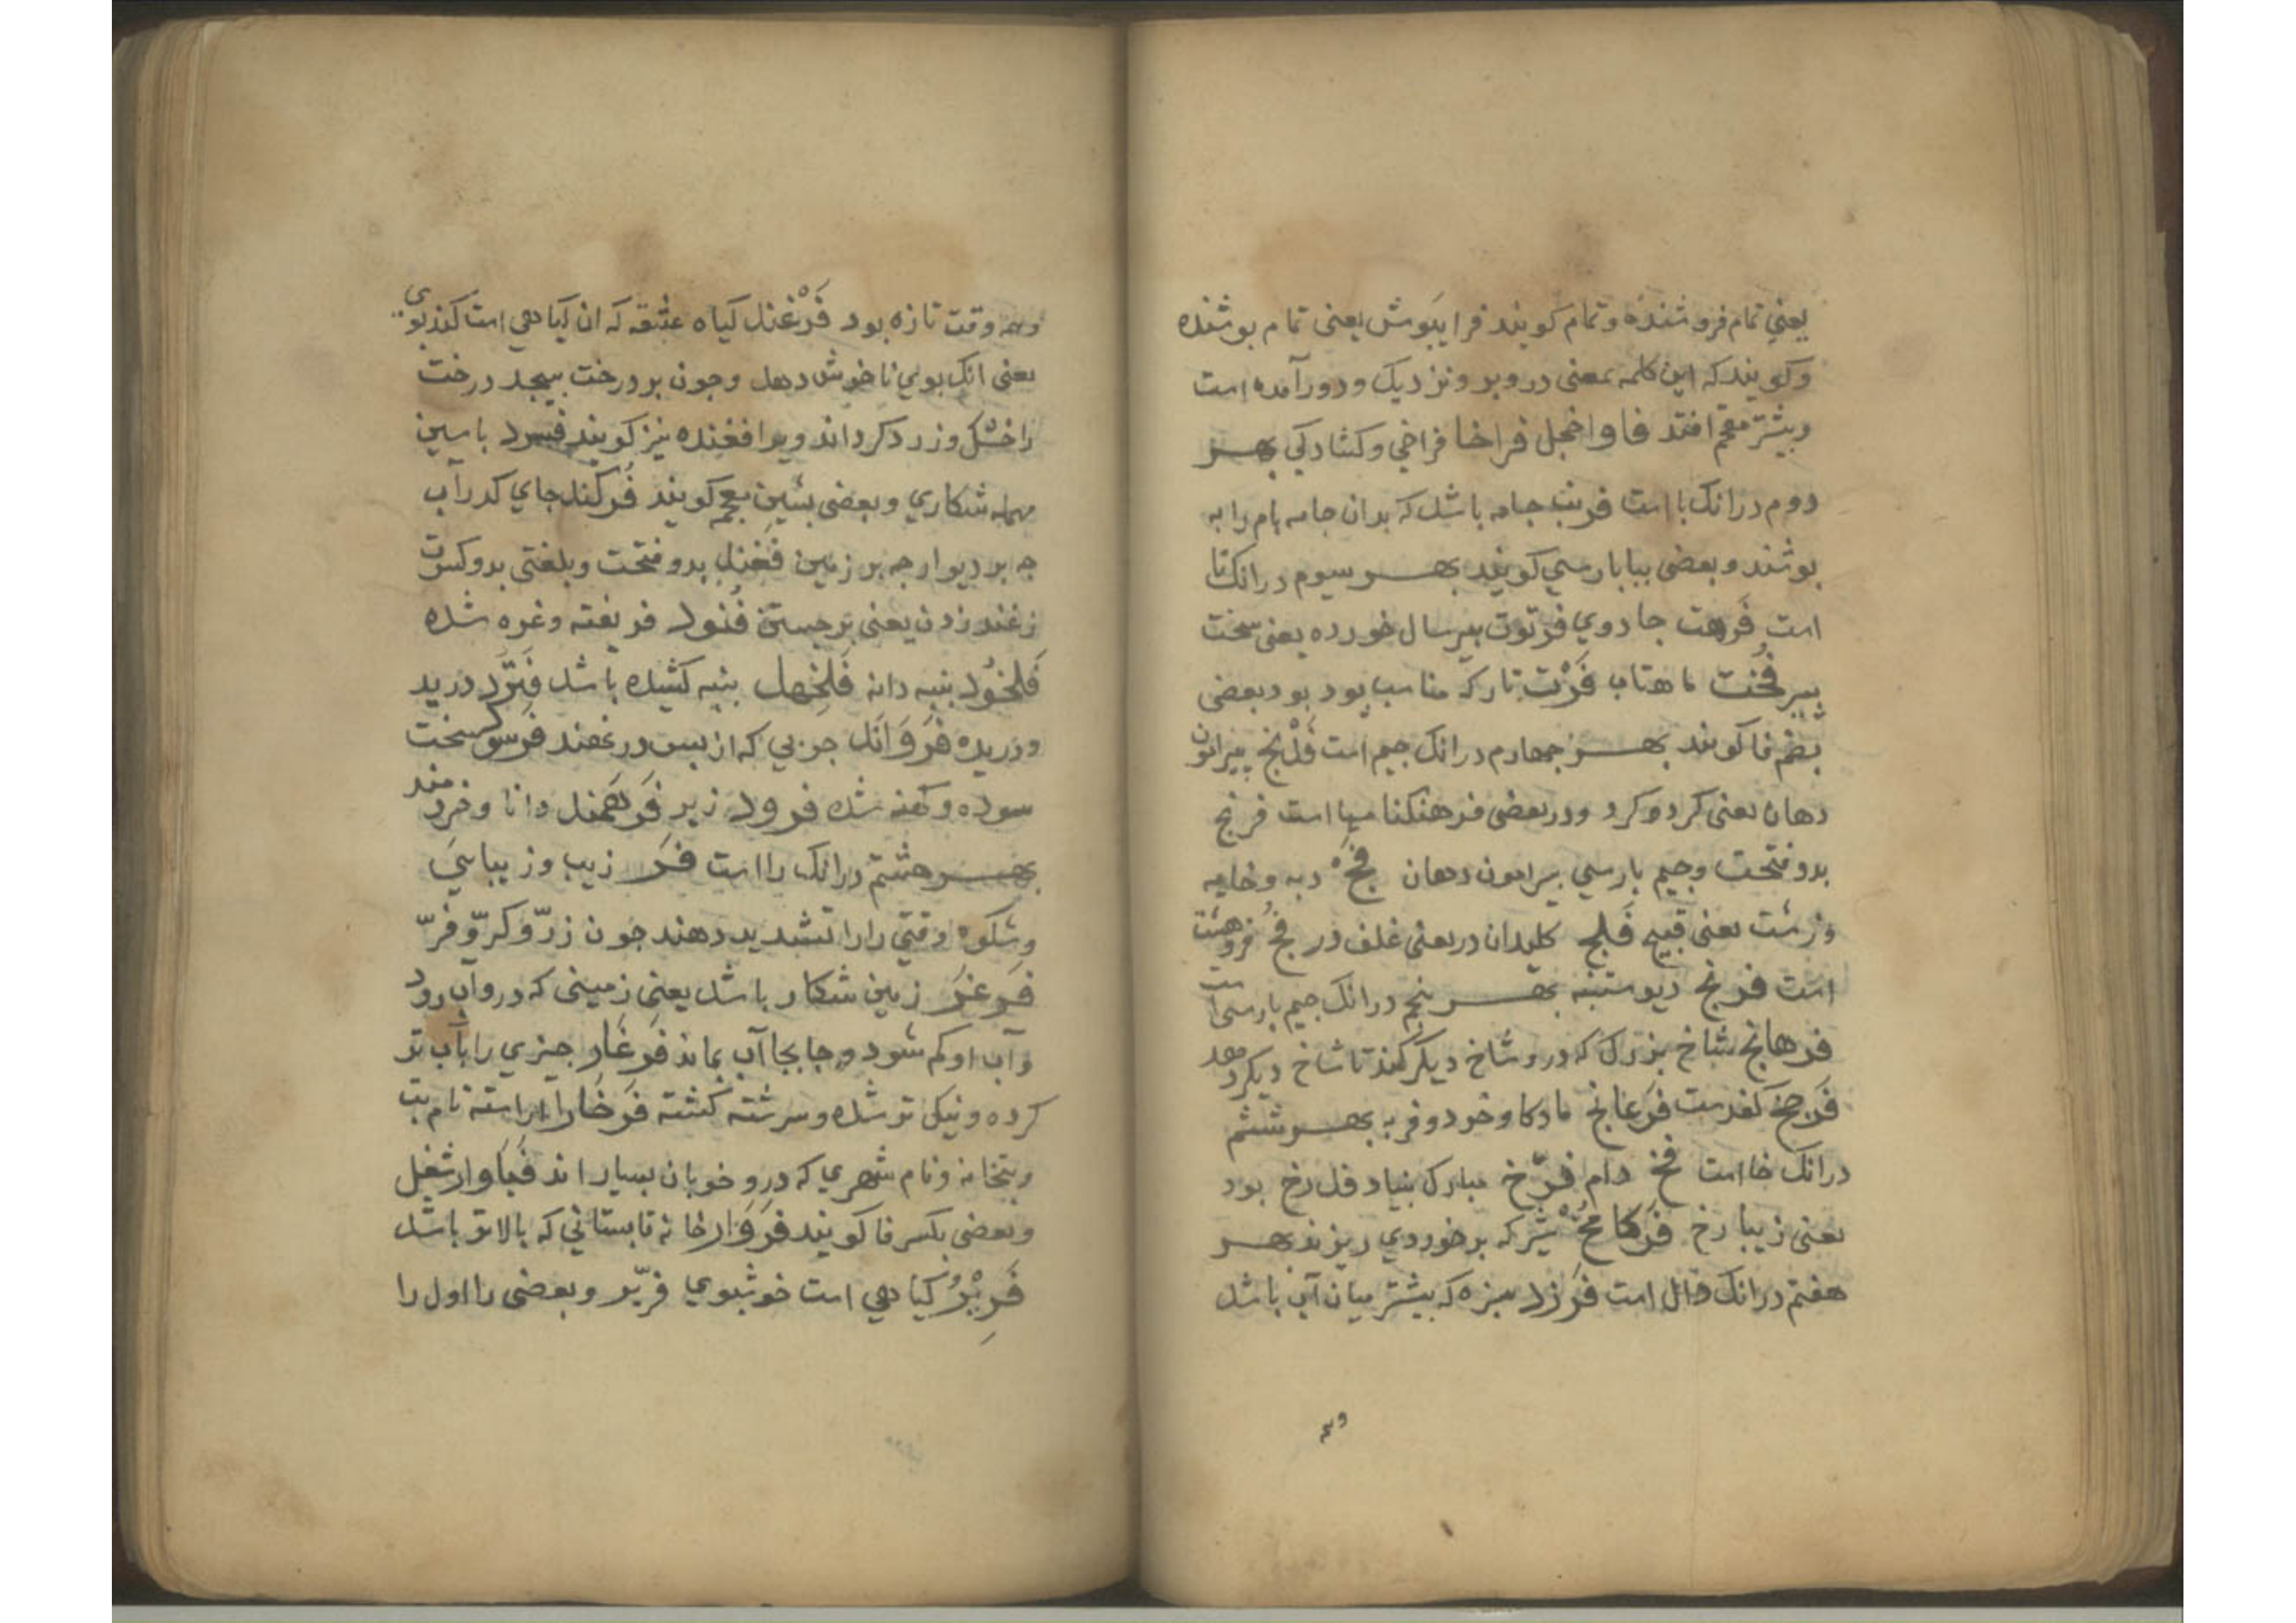 یعنی تمام فروشنده وتمام کویند فرا یپوش یعنی تمام پوشنده
وکویند که این کلمه بمعنی در وبر ونزدیک ودور آمده است
وبیشتر مفحم افتد فاما واخجل فراخا فراخی وکشادکی بهر
دوم درانک با است فریب جامه باشد که بدان جامه بام را به
بوشند وبعضی ببا بارسی کویند بهر سیوم درانک تا
است فرهت جادوی فرتوت بیر سال خورده یعنی سخت
بیر فخت ماهتاب فرت تار که مناسب بود بود بعضی
بضم فا کویند بهر جهارم درانک جیم است فلنج بیرامون
دهان یعنی کرد وکرد ودر بعضی فرهنکنامها است فرنج
بدو فتحت وجیم بارسی بیرامون دهان فج دبه وخایه
وزشت یعنی قبیح فلج کلیدان در یعنی غلف در فج فروهشت
است فرنج دیو ستنبه بهر بنجم درانک جیم بارسی است
فرهانج شاخ بزرک که درو شاخ دیکر کنند تا شاخ دیکر دهد
فرخج کفدست فرغانج مادکاو خود وفربه بهر ششم
درانک خا است فخ دام فرخ مبارک بنیاد فل رخ بود
یعنی زیبا رخ فرکامخ شیر که بر خوردی ریزند بهر
هفتم درانک دال است فرزد سبزه که بیشتر میان آب باشد
وهمه
وهمه وقت تازه بود فرغند کیاه عشقه که ان کیاهی است کند بوی
یعنی انک بوی ناخوش دهد وجون بر درخت بیجد درخت
را خشک وزرد کرداند وبر افغنده نیز کویند فسرد با سین
مهمله شکاری وبعضی بشین معجمه کویند فرکند جای کدر آب
جه بر دیوار جه بر زمین فغند بدو فتحت وبلغتی بدو کسرت
زغند زدن یعنی برجستن فنود فریفته وغره شده
فلخود بنبه دانه فلخهد بنبه کشیده باشد فترد درید
ودریده فروانک جوبی که از بس در نهند فرسود سخت
سوده وکهنه شده فرود زیر فرهمند دانا وخردمند
بهر هشتم درانک را است فر زیب وزیبایی
وشکوه وقتی را را تشدید دهند جون زرّ وکرّ وفرّ
فرغر زمین شکار باشد یعنی زمینی که درو آب رود
وآب او کم شود وجابجا آب بماند فرغار جیزی را بآب تر
کرده ونیک تر شده وسرشته کشته فرخار اراسته نام بت
وبتخانه ونام شهری که درو خوبان بسیار اند فیاوار شغل
وبعضی بکسر فا کویند فروار خانه تابستانی که بالا تر باشد
فریر کیاهی است خوشبوی فریر وبعضی را اول را